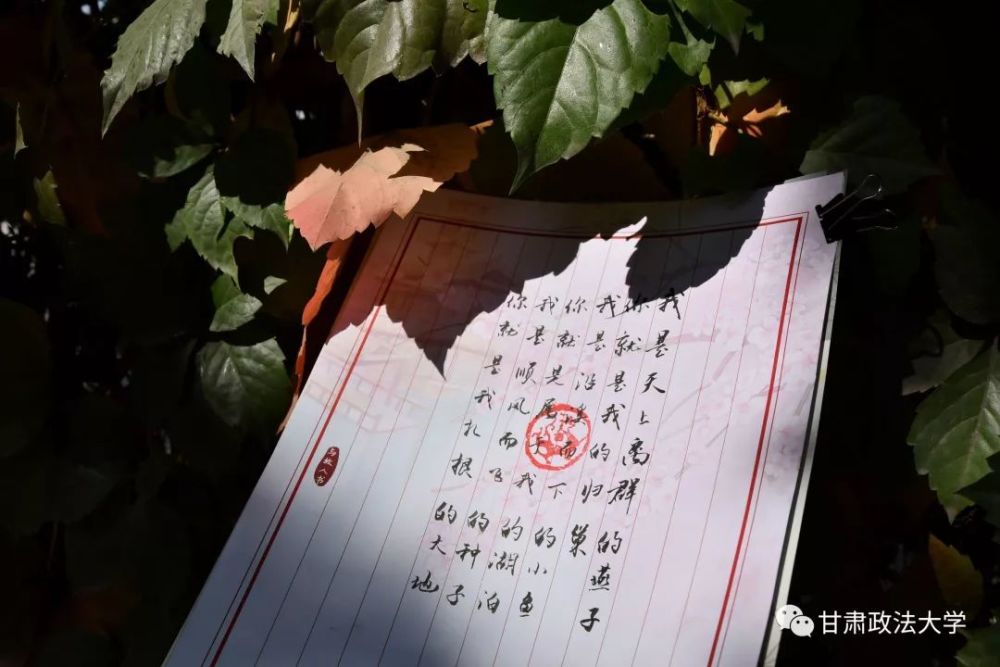 我是天上离群的燕子
你就是我的归巢
我是沿而下的小鱼
你就是属于我的湖泊
我是顺风而飞的种子
你就是我扎根的大地
与故人书
甘肃政法大学